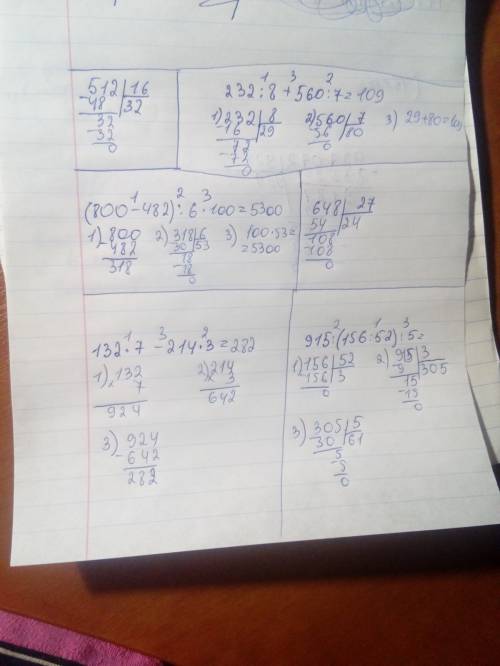 512 16
-48 32
32
-32
0
1 3 2
232:8+560:7=109
1) 232 8 2) 560 7 3) 29+80=109
-16 29 56 80
72 0
-72
0
1 2 3
(800-482):6·100=5300
1) 800 2) 318 6 3) 100·53=
482 30 53 =5300
318 18
-18
0
648 27
54 24
108
-108
0
1 3 2
132·7-214·3=282
1) 132 2) 214
7 × 3
924 642
3) 924
-642
282
2 1 3
915:(156:52):5=
1) 156 52 2) 915 3
-156 3 9 305
0 15
-15
0
3) 305 5
30 61
5
-5
0